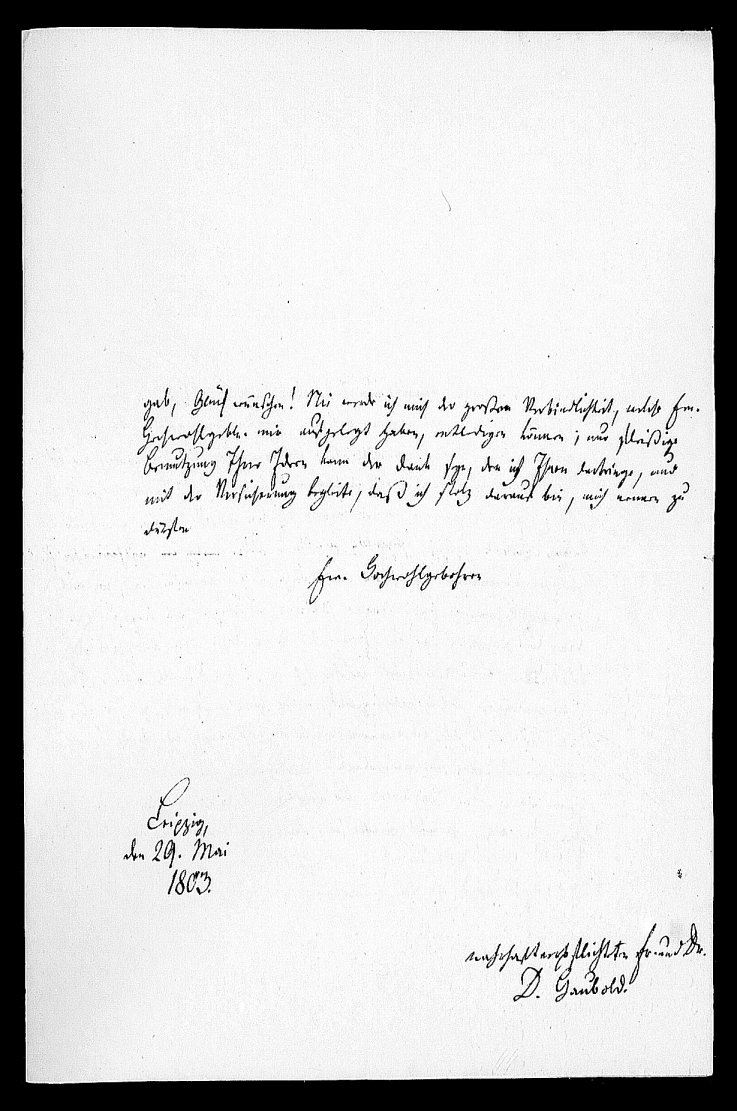 gab, Glück wünschen! Nie werde ich mich der großen Verbindlichkeit, welche Ew.
Hochwohlgebln. mir aufgelegt haben, entledigen können; nur fleißige
Benutzung Ihrer Ideen kann der Dank seyn, den ich Ihnen darbringe, und
mit der Versicherung begleite, daß ich stolz darauf bin, mich nennen zu
dürfen
Ew. Hochwohlgebohren
Leipzig,
den 29. Mai
1803.
wahrhaft verpflichteter Freund Dr.
D. Haubold.